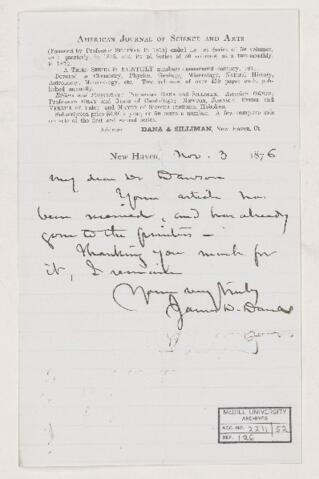 AMERICAN JOURNAL OF SCIENCE AND ARTS
(Founded by Professor SILLIMAN in 1818) ended its 1st Series of 50 volumes,
as a quarterly, in 1845, and its 2d Series of 50 volumes, as a two-monthly,
in 1870.
A THIRD SERIES in MONTHLY numbers commenced January, 1871.
Devoted to Chemistry, Physics, Geology, Mineralogy, Natural History,
Astronomy, Meteorology, etc. Two volumes of over 450 pages each, published
annually.
Editors and Proprietors: Professors DANA and SILLIMAN. Associate Editors,
Professors GRAY and GIBBS of Cambridge; NEWTON, JOHNSON, BRUSH and
VERRILL of Yale;
Subscription price
sets of the first and second series.
Address DANA & SILLIMAN, New Haven, Ct
New Haven, Nov. 3 1876
My dear Dr Dawson
Your article has
been received, and has already
gone to the printers —
Thanking you much for
it, I remain
Yours very truly
James D. Dana
McGILL UNIVERSITY
ARCHIVES
ACC. NO. 2211 52
REF. 126